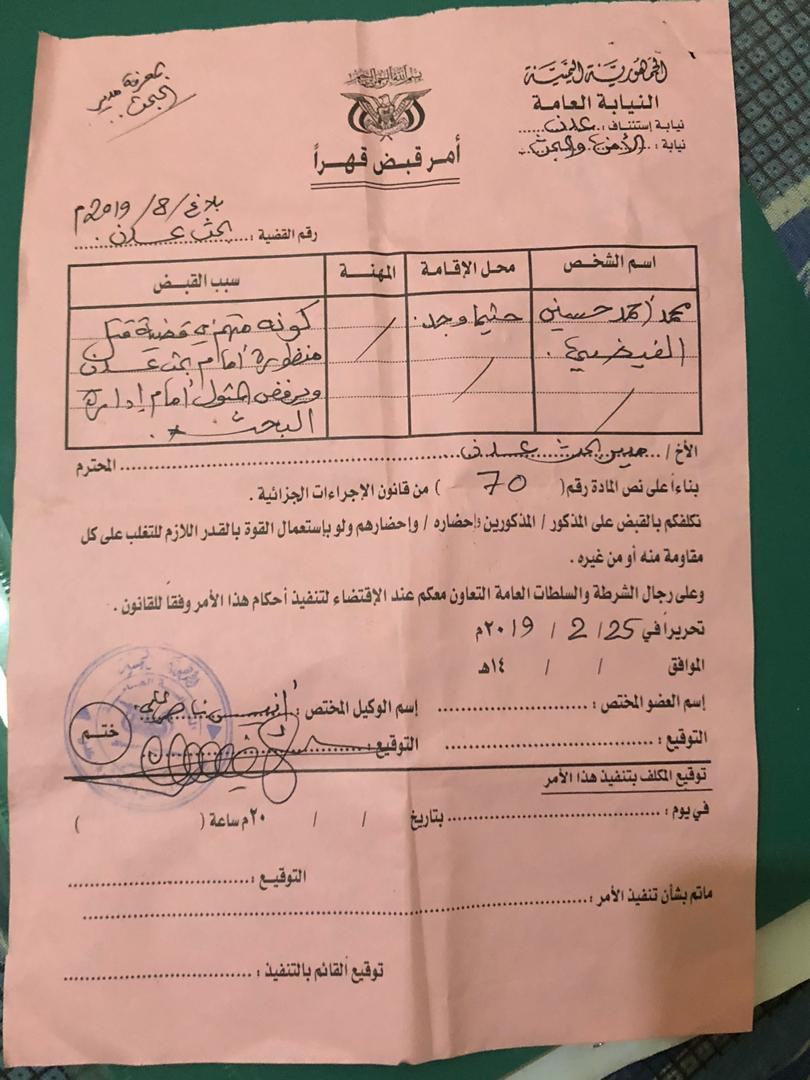 بسم الله الرحمن الرحيم
الجمهورية اليمنية
النيابة العامة
نيابة إستئناف : عدن
نيابة : الأمن والبحث
بمعرفة مدير
البحث
أمر قبض قهراً
بلاغ / 8 / 2019م
رقم القضية : بحث عدن
اسم الشخص محل الإقامة المهنة سبب القبض
محمد أحمد حسين حيثما وجد / كونه متهم في قضية قتل
منظورة أمام بحث عدن
ويرفض المثول أمام إدارة
البحث
الأخ / مدير بحث عدن المحترم
بناءاً على نص المادة رقم ( 70 ) من قانون الإجراءات الجزائية .
نكلفكم بالقبض على المذكور / المذكورين وإحضاره / وإحضارهم ولو بإستعمال القوة بالقدر اللازم للتغلب على كل
مقاومة منه أو من غيره .
وعلى رجال الشرطة والسلطات العامة التعاون معكم عند الإقتضاء لتنفيذ أحكام هذا الأمر وفقاً للقانون .
تحريراً في 25 / 2 / ٢٠19م
الموافق / / ١٤هـ
إسم العضو المختص : إسم الوكيل المختص :
التوقيع : التوقيع :
ختم
توقيع المكلف بتنفيذ هذا الأمر
في يوم : بتاريخ / / ٢٠م ساعة ( )
التوقيع :
ماتم بشأن تنفيذ الأمر :
توقيع القائم بالتنفيذ :